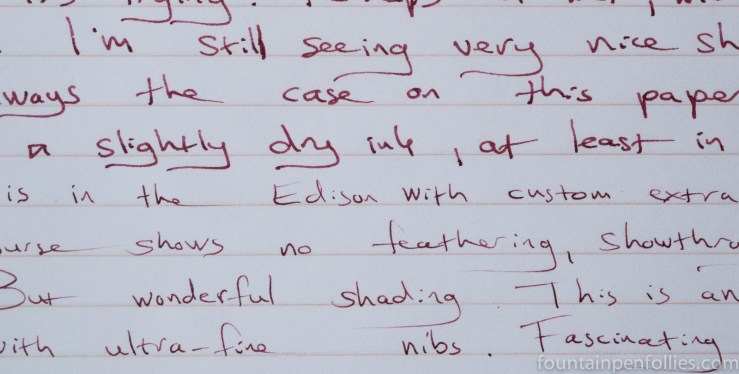 I'm still seeing very nice sh
ways the case on this paper
a slightly dry ink, at least in
is in the Edison with custom extra
urse shows no feathering, showthro
But wonderful shading. This is an
with ultra-fine nibs. Fascinating
fountainpenfollies.com